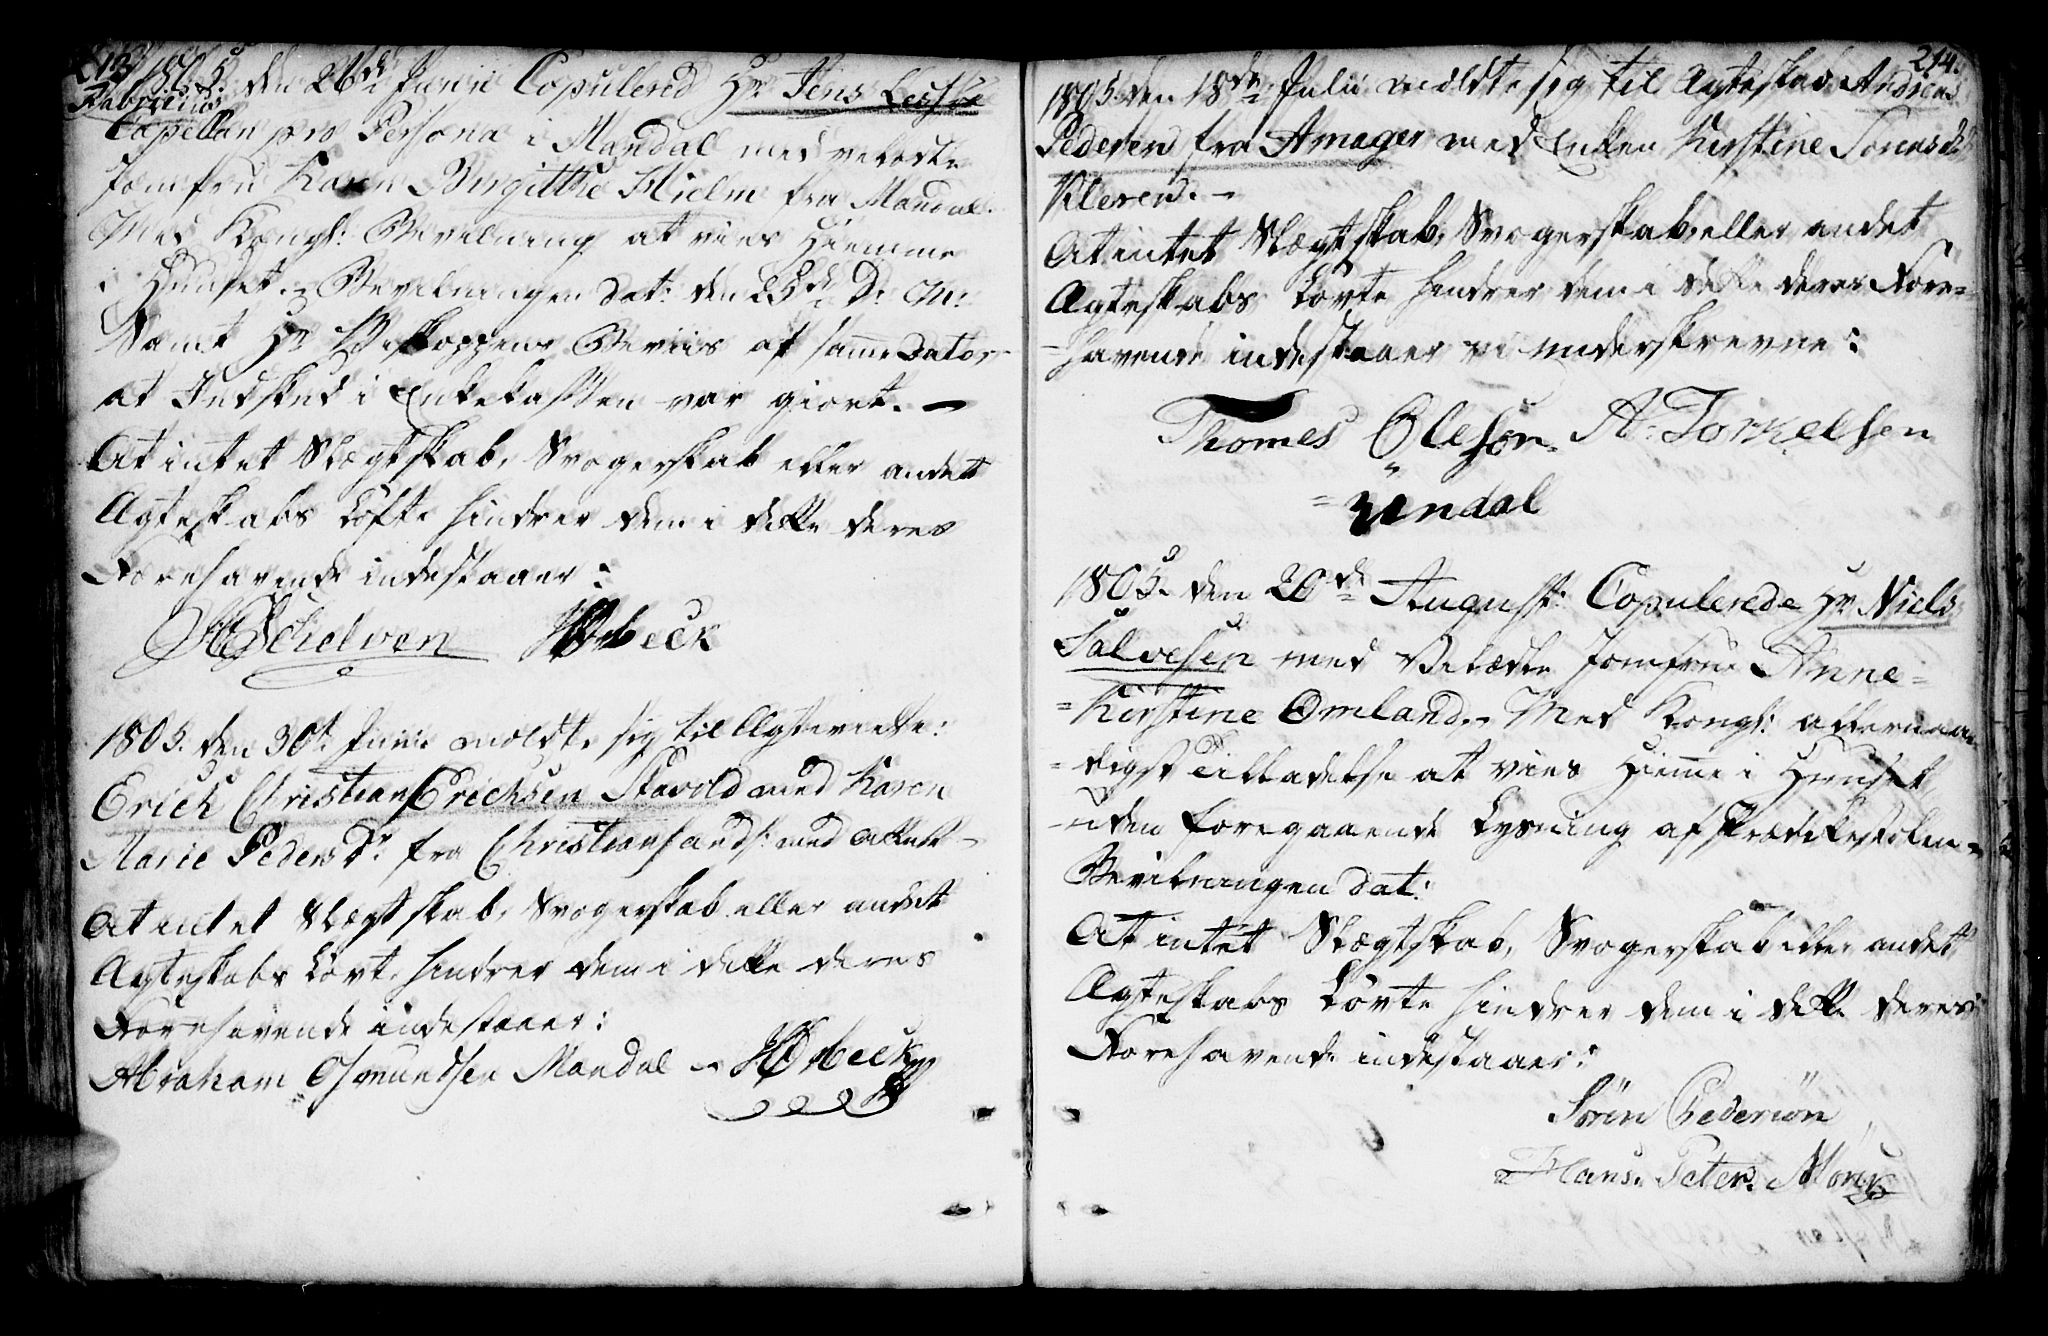 213
1805. den 26de Junii Copulered Hr Jens
Fabricius
Capellan pro Persona i Mandal med velædte
Jomfru Karen Birgitthe Hielm fra Mandal.
Med Kongl: Bevilning at vies Hiemme
i Huuset. Bevilningen dat: den 25de D: M:
Samt Hr Biskoppens Beviis af samme Dato,
at Indskud i Enkekassen var giort. —
At intet Slægtskab, Svogerskab eller andet
Ægteskabs Løfte hindrer dem i dette deres
Forehavende indestaaer:
Schelven Orbeck
1805. den 30t Junii meldte sig til Ægtevielse:
Erich Christian Erichsen Skavold med Karen
Marie Pedersdr fra Christiansand: med Attest
At intet Slægtskab, Svogerskab eller andet
Ægteskabs Løvte hindrer dem i dette deres
Forehavende indestaaer:
Abraham Osmundsen Mandal Orbeck
214.
1805. den 18de Julii meldte sig til Ægteskab Andreas
Pedersen fra Amager med Enken Kirstine Sørensdr
Kleven. —
At intet Slægtskab, Svogerskab, eller andet
Ægteskabs Løvte hindrer dem i dette deres Fore-
-havende indestaaer vi underskrevne:
Thomes Olesen A. Torkelsen
Undal
1805. den 20de August: Copulerede Hr Niels
Salvesen med Velædle Jomfrue Anne
Kirstine Omland. Med Kongl: allernaa-
-digst Tilladelse at vies Hieme i Huuset,
uden foregaaende Lysning af Prædikestolen
Bevilningen dat:
At intet Slægtskab, Svogerskab eller andet
Ægteskabs Løvte hindrer dem i dette deres
Forehavende indestaaer:
Sören Pedersön
Hans Peter